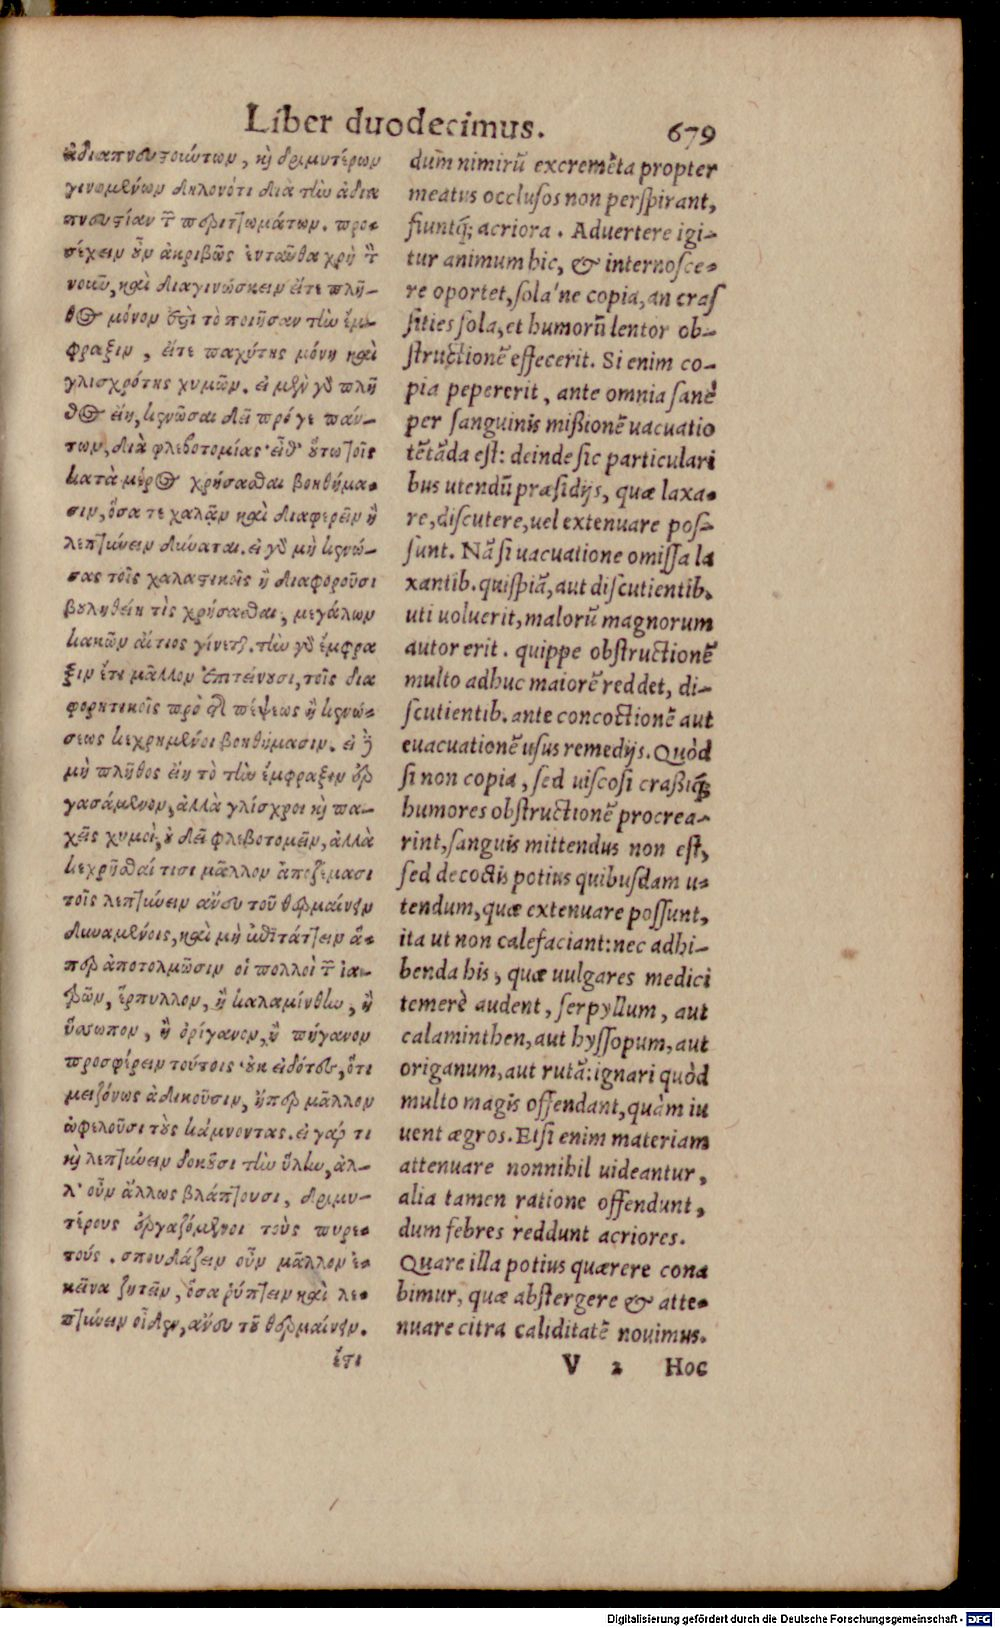 Liber duodecimus. 679
ἀδιαπνευστούντων, κỳ δριμυτέρων
γινομένων δηλονότι διὰ τὴν ἀδια
πνευστίαν τ̃ περιττωμάτων. προσ
σέχειν οὖν ἀκριβῶς ἐνταῦθα χρὴ τ̃
νοῦν, καὶ διαγινώσκειν εἴτε πλῆ-
θος μόνον ἐστὶ τὸ ποιῆσαν τὴν ἔμ-
φραξιν, εἴτε παχύτης μόνη καὶ
γλισχρότης χυμῶν. εἰ μὲν γὰρ πλῆ
θος εἴη, κενῶσαι δεῖ πρό γε πάν-
των, διὰ φλεβοτομίας· εἶθ' οὕτω τοῖς
κατὰ μέρος χρήσασθαι βοηθήμα-
σιν, ὅσα τε χαλᾶν καὶ διαφορεῖν ἢ
λεπτύνειν δύναται. εἰ γὰρ μὴ κενώ-
σας τοῖς χαλαστικοῖς ἢ διαφοροῦσι
βουληθείη τὶς χρήσασθαι, μεγάλων
κακῶν αἴτιος γίνεται. τὴν γὰρ ἔμφρα
ξιν ἔτι μᾶλλον ἐπιτείνουσι, τοῖς δια
φορητικοῖς πρὸ τῆς πέψεως ἢ κενώ-
σεως κεχρημένοι βοηθήμασιν. εἰ δὲ
μὴ πλῆθος εἴη τὸ τὴν ἔμφραξιν ἐρ
γασάμενον, ἀλλὰ γλίσχροι κỳ πα-
χεῖς χυμοί, οὐ δεῖ φλεβοτομεῖν, ἀλλὰ
κεχρῆσθαί τισι μᾶλλον ἀποζέμασι
τοῖς λεπτύνειν ἄνευ τοῦ θερμαίνειν
δυναμένοις, καὶ μὴ ἐπιτάττειν ἅ-
περ ἀποτολμῶσιν οἱ πολλοὶ τ̃ ἰα-
τρῶν, ἕρπυλλον, ἢ καλαμίνθην, ἢ
ὕσσωπον, ἢ ὀρίγανον, ἢ πήγανον
προσφέρειν τούτοις· οὐκ εἰδότες, ὅτι
μειζόνως ἀδικοῦσιν, ἤπερ μᾶλλον
ὠφελοῦσι τοὺς κάμνοντας. εἰ γάρ τι
κỳ λεπτύνειν δοκοῦσι τὴν ὕλην, ἀλ-
λ' οὖν ἄλλως βλάπτουσι, δριμυ-
τέρους ἐργαζόμενοι τοὺς πυρε-
τούς. σπουδάζειν οὖν μᾶλλον ἐ-
κεῖνα ζητεῖν, ὅσα ῥύπτειν καὶ λε-
πτύνειν οἶδεν, ἄνευ τοῦ θερμαίνειν.
ἔτι
dum nimirũ excremẽta propter
meatus occlusos non perspirant,
fiuntq́; acriora. Aduertere igi-
tur animum hic, & internosce-
re oportet, sola'ne copia, an cras
sities sola, et humorũ lentor ob-
structionẽ effecerit. Si enim co-
pia pepererit, ante omnia sanè
per sanguinis mißionẽ uacuatio
tẽtãda est: deinde sic particulari
bus utendũ præsidijs, quæ laxa-
re, discutere, uel extenuare pos-
sunt. Nã si uacuatione omissa la
xantib. quispiã, aut discutientib.
uti uoluerit, malorũ magnorum
autor erit. quippe obstructionẽ
multo adhuc maiorẽ reddet, di-
scutientib. ante concoctionẽ aut
euacuationẽ usus remedijs. Quòd
si non copia, sed uiscosi craßiq́;
humores obstructionẽ procrea-
rint, sanguis mittendus non est,
sed decoctis potius quibusdam u-
tendum, quæ extenuare possunt,
ita ut non calefaciant: nec adhi-
benda his, quæ uulgares medici
temerè audent, serpyllum, aut
calaminthen, aut hyssopum, aut
origanum, aut rutã: ignari quòd
multo magis offendant, quàm iu
uent ægros. Etsi enim materiam
attenuare nonnihil uideantur,
alia tamen ratione offendunt,
dum febres reddunt acriores.
Quare illa potius quærere cona
bimur, quæ abstergere & atte-
nuare citra caliditatẽ nouimus.
V 2 Hoc
Digitalisierung gefördert durch die Deutsche Forschungsgemeinschaft - DFG